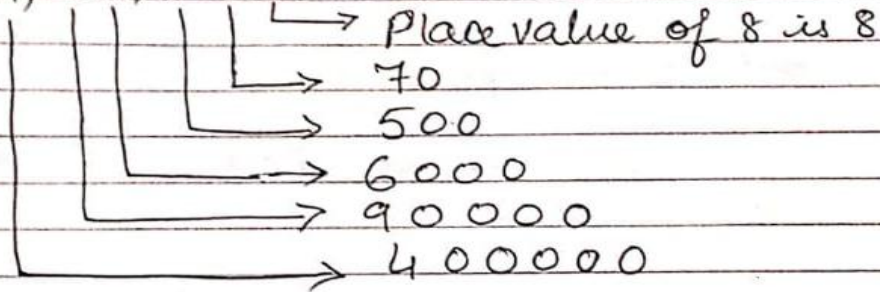 Place value of 8 is 8
70
500
6000
90000
400000